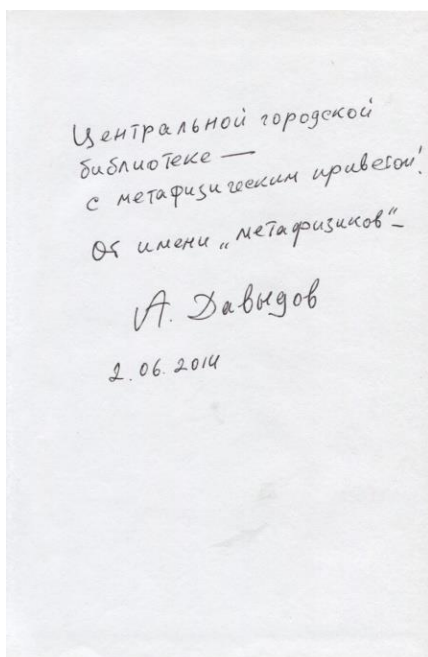 Центральной городской
библиотеке —
с метафизическим приветом!
От имени „метафизиков“ –
А. Давыдов
2.06.2014